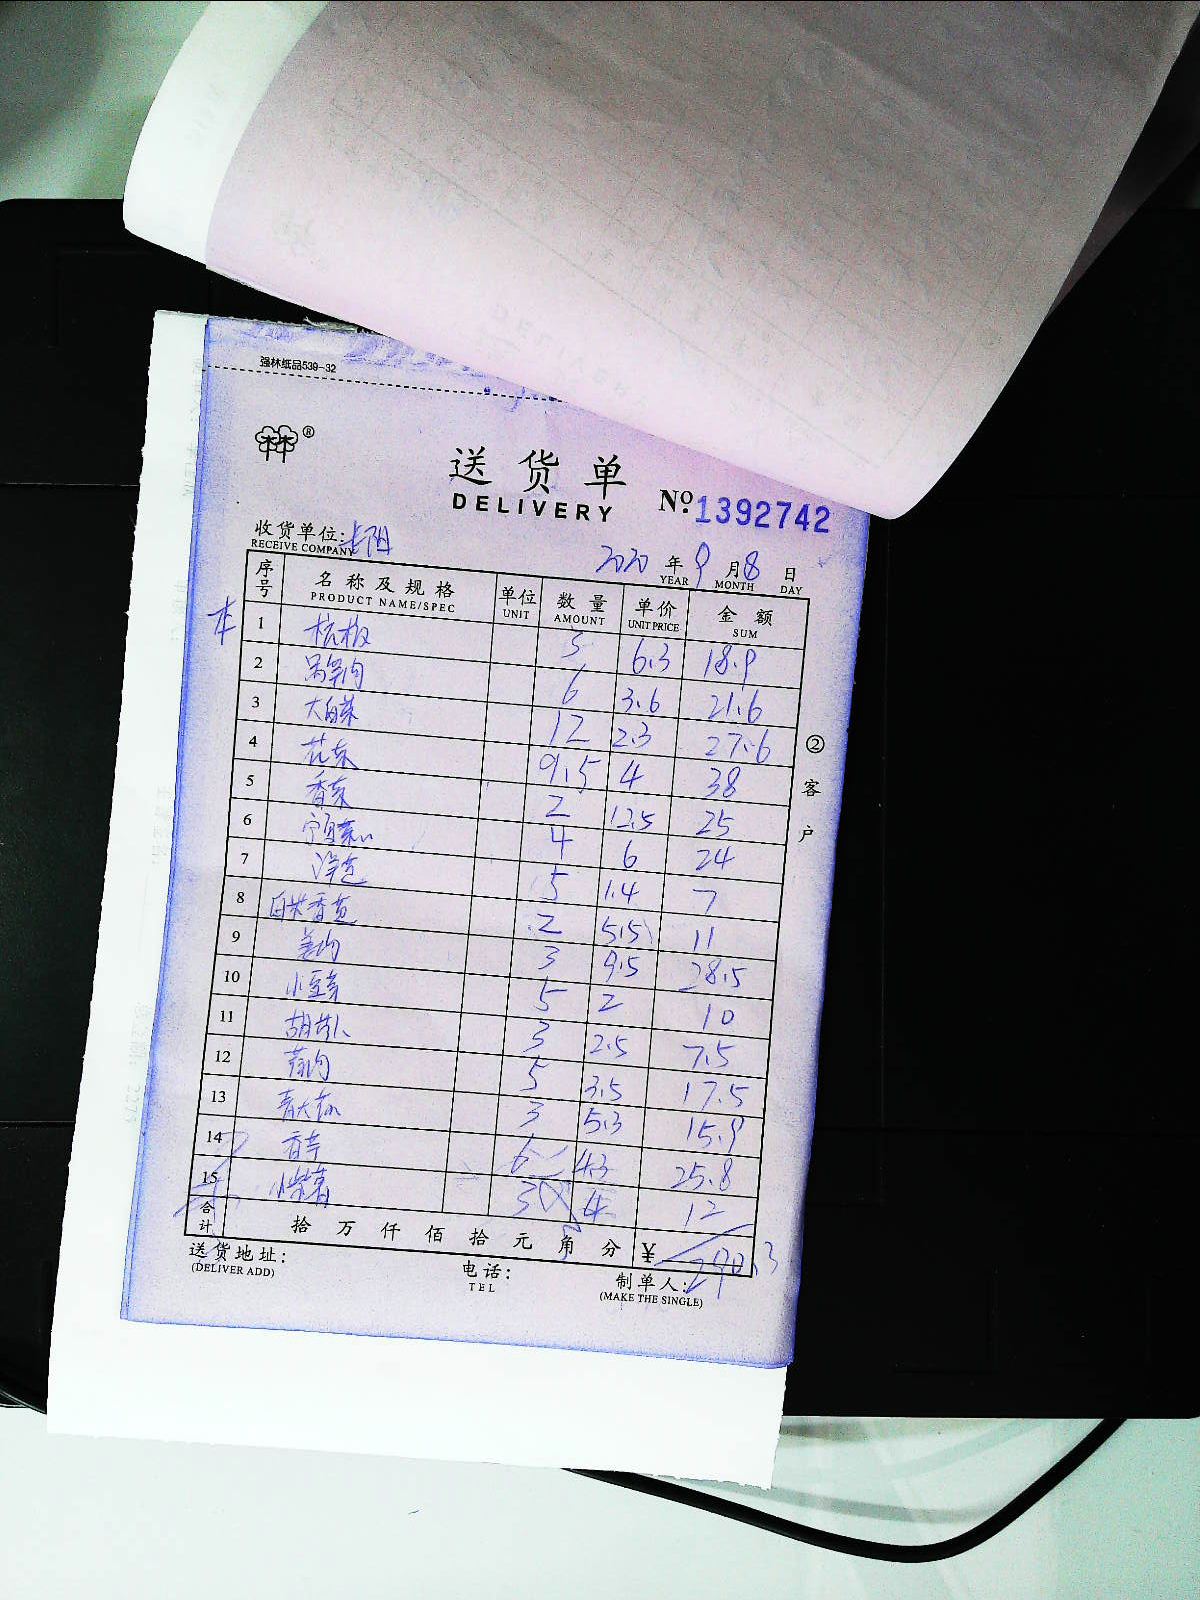 强林纸品539-32
®
送货单
DELIVERY
№ 1392742
收货单位:
RECEIVE COMPANY
2020 年 9 月 8 日
YEAR MONTH DAY
序号 名称及规格 单位 数量 单价 金额
PRODUCT NAME/SPEC UNIT AMOUNT UNIT PRICE SUM
1 杭椒 6.3 18.9
2 6 3.6 21.6
3 大白菜 12 2.3 27.6
4 花菜 9.5 4 38
5 香菜 2 12.5 25
6 4 6 24
7 洋葱 5 1.4 7
8 2 5.5 11
9 3 9.5 28.5
10 小豆芽 5 2 10
11 3 2.5 7.5
12 5 3.5 17.5
13 3 5.3 15.9
14 香芹 6 4.3 25.8
15 3 4 12
合计 拾 万 仟 佰 拾 元 角 分 ¥ 290.3
送货地址:
(DELIVER ADD)
电话:
TEL
制单人:
(MAKE THE SINGLE)
②客户